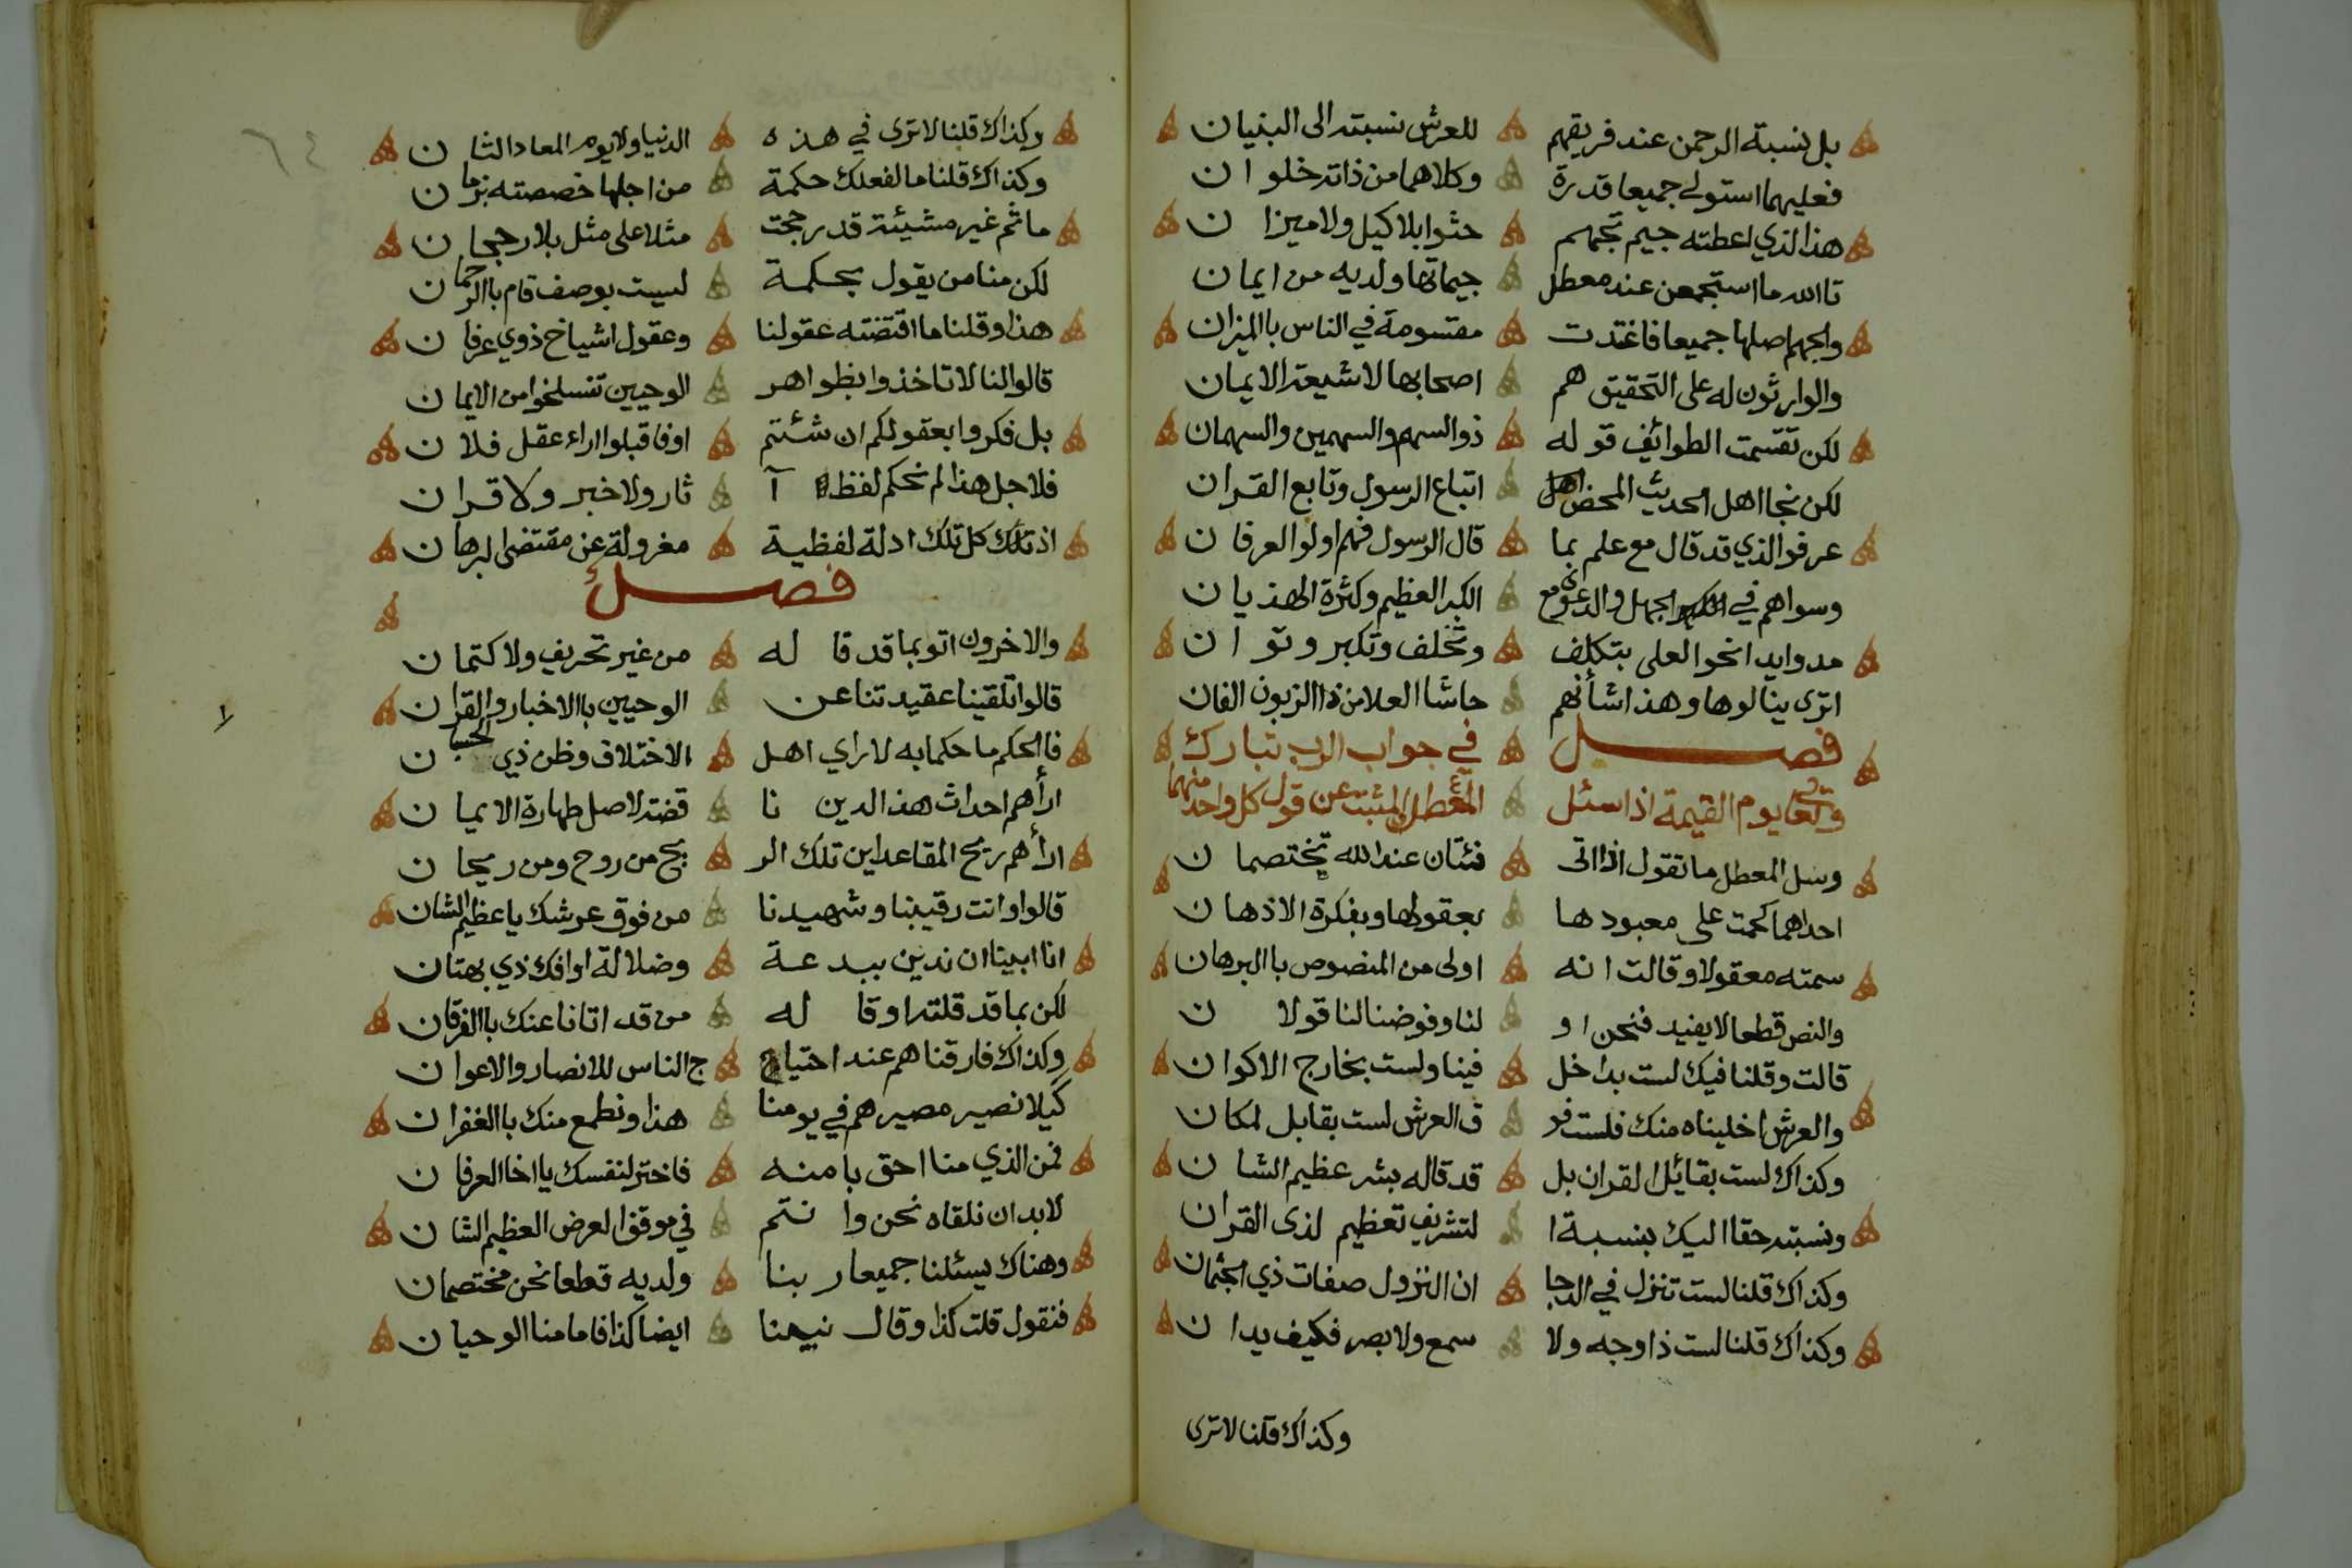 بل نسبة الرحمن عند فريقهم للعرش نسبته الى البنيان
فعليهما استولى جميعا قدرة وكلاهما من ذاته خلوان
هذا الذي اعطته جيم تجهم حثوا بلا كيل ولا ميزان
تا الله ما استجمعن عند معطل جيماتها ولديه من ايمان
والجهم اصلها جميعا فاغتدت مقسومة في الناس باالميزان
والوارثون له على التحقيق هم اصحابها لا شيعة الايمان
لكن تقسمت الطوائف قوله ذو السهم والسهمين والسهمان
لكن نجا اهل الحديث المحض اهل اتباع الرسول وتابع القران
عرفوا الذي قد قال مع علم بما قال الرسول فهم اولوا العرفان
وسواهم في الجهل والدعوى مع الكبر العظيم وكثرة الهذيان
مدوا يدا نحو العلى بتكلف وتخلف وتكبر وتوان
اترى ينالوها وهذا شأنهم حاشا العلا من ذا الزبون الفان
فصل في جواب الرب تبارك
وتعا يوم القيمة اذا سئل المعطل والمثبت عن قول كل واحد منهما
وسل المعطل ما تقول اذا اتى فئتان عند الله تختصمان
احداهما حكمت على معبودها بعقولها وبفكرة الاذهان
سمته معقولا وقالت انه اولى من المنصوص باالبرهان
والنص قطعا لا يفيد فنحن او لنا وفوضنا لنا قولان
قالت وقلنا فيك لست بداخل فينا ولست بخارج الاكوان
والعرش اخليناه منك فلست فو ق العرش لست بقابل لمكان
وكذاك لست بقائل القران بل قد قاله بشر عظيم الشان
ونسبته حقا اليك بنسبة ا لتشريف تعظيم لذى القران
وكذاك قلنا لست تنزل في الدجا ان النزول صفات ذي الجثمان
وكذاك قلنا لست ذا وجه ولا سمع ولا بصر فكيف يدان
وكذاك قلنا لا ترى
وكذاك قلنا لا ترى في هذه الدنيا ولا يوم المعاد الثان
وكذاك قلنا ما لفعلك حكمة من اجلها خصصته بزمان
ما ثم غير مشيئة قد رجحت مثلا على مثل بلا رجحان
لكن منا من يقول بحكمة ليست بوصف قام باالرحمان
هذا وقلنا ما اقتضته عقولنا وعقول اشياخ ذوي عرفان
قالوا لنا لا تاخذوا بظواهر الوحيين تنسلخوا من الايمان
بل فكروا بعقولكم ان شئتم اوفا قبلوا اراء عقل فلان
فلاجل هذا لم نحكم لفظ آ ثار ولا خبر ولا قران
اذ تلك كل تلك ادلة لفظية معزولة عن مقتضى البرهان
فصل
والاخرون اتو بما قد قاله من غير تحريف ولا كتمان
قالوا تلقينا عقيدتنا عن الوحيين باالاخبار والقران
فالحكم ما حكما به لا راي اهل الاختلاف وظن ذي الحسبان
اراهم احداث هذا الدين نا قضة لاصل طهارة الايمان
اراهم ريح المقاعد اين تلك الر يح من روح ومن ريحان
قالوا وانت رقيبنا وشهيدنا من فوق عرشك يا عظيم الشان
انا ابينا ان ندين ببدعة وضلالة او افك ذي بهتان
لكن بما قد قلته او قاله من قد اتانا عنك باالفرقان
وكذاك فارقناهم عند احتيا ج الناس للانصار والاعوان
كيلا نصير مصيرهم في يومنا هذا ونطمع منك باالغفران
فمن الذي منا احق بامنه فاختر لنفسك يا اخا العرفان
لا بد ان نلقاه نحن وانتم في موقف العرض العظيم الشان
وهناك يسئلنا جميعا ربنا ولديه قطعا نحن مختصمان
فنقول قلت كذا وقال نبينا ايضا كذا فامامنا الوحيان